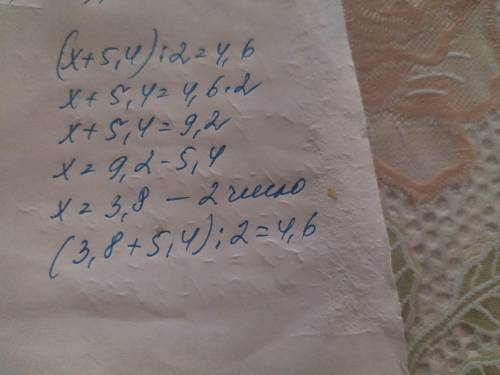 (x+5,4):2=4,6
x+5,4=4,6·2
x+5,4=9,2
x=9,2-5,4
x=3,8 – 2 число
(3,8+5,4):2=4,6